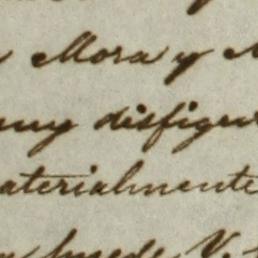 Mora y
muy disfigu
aterialmente
puede V.